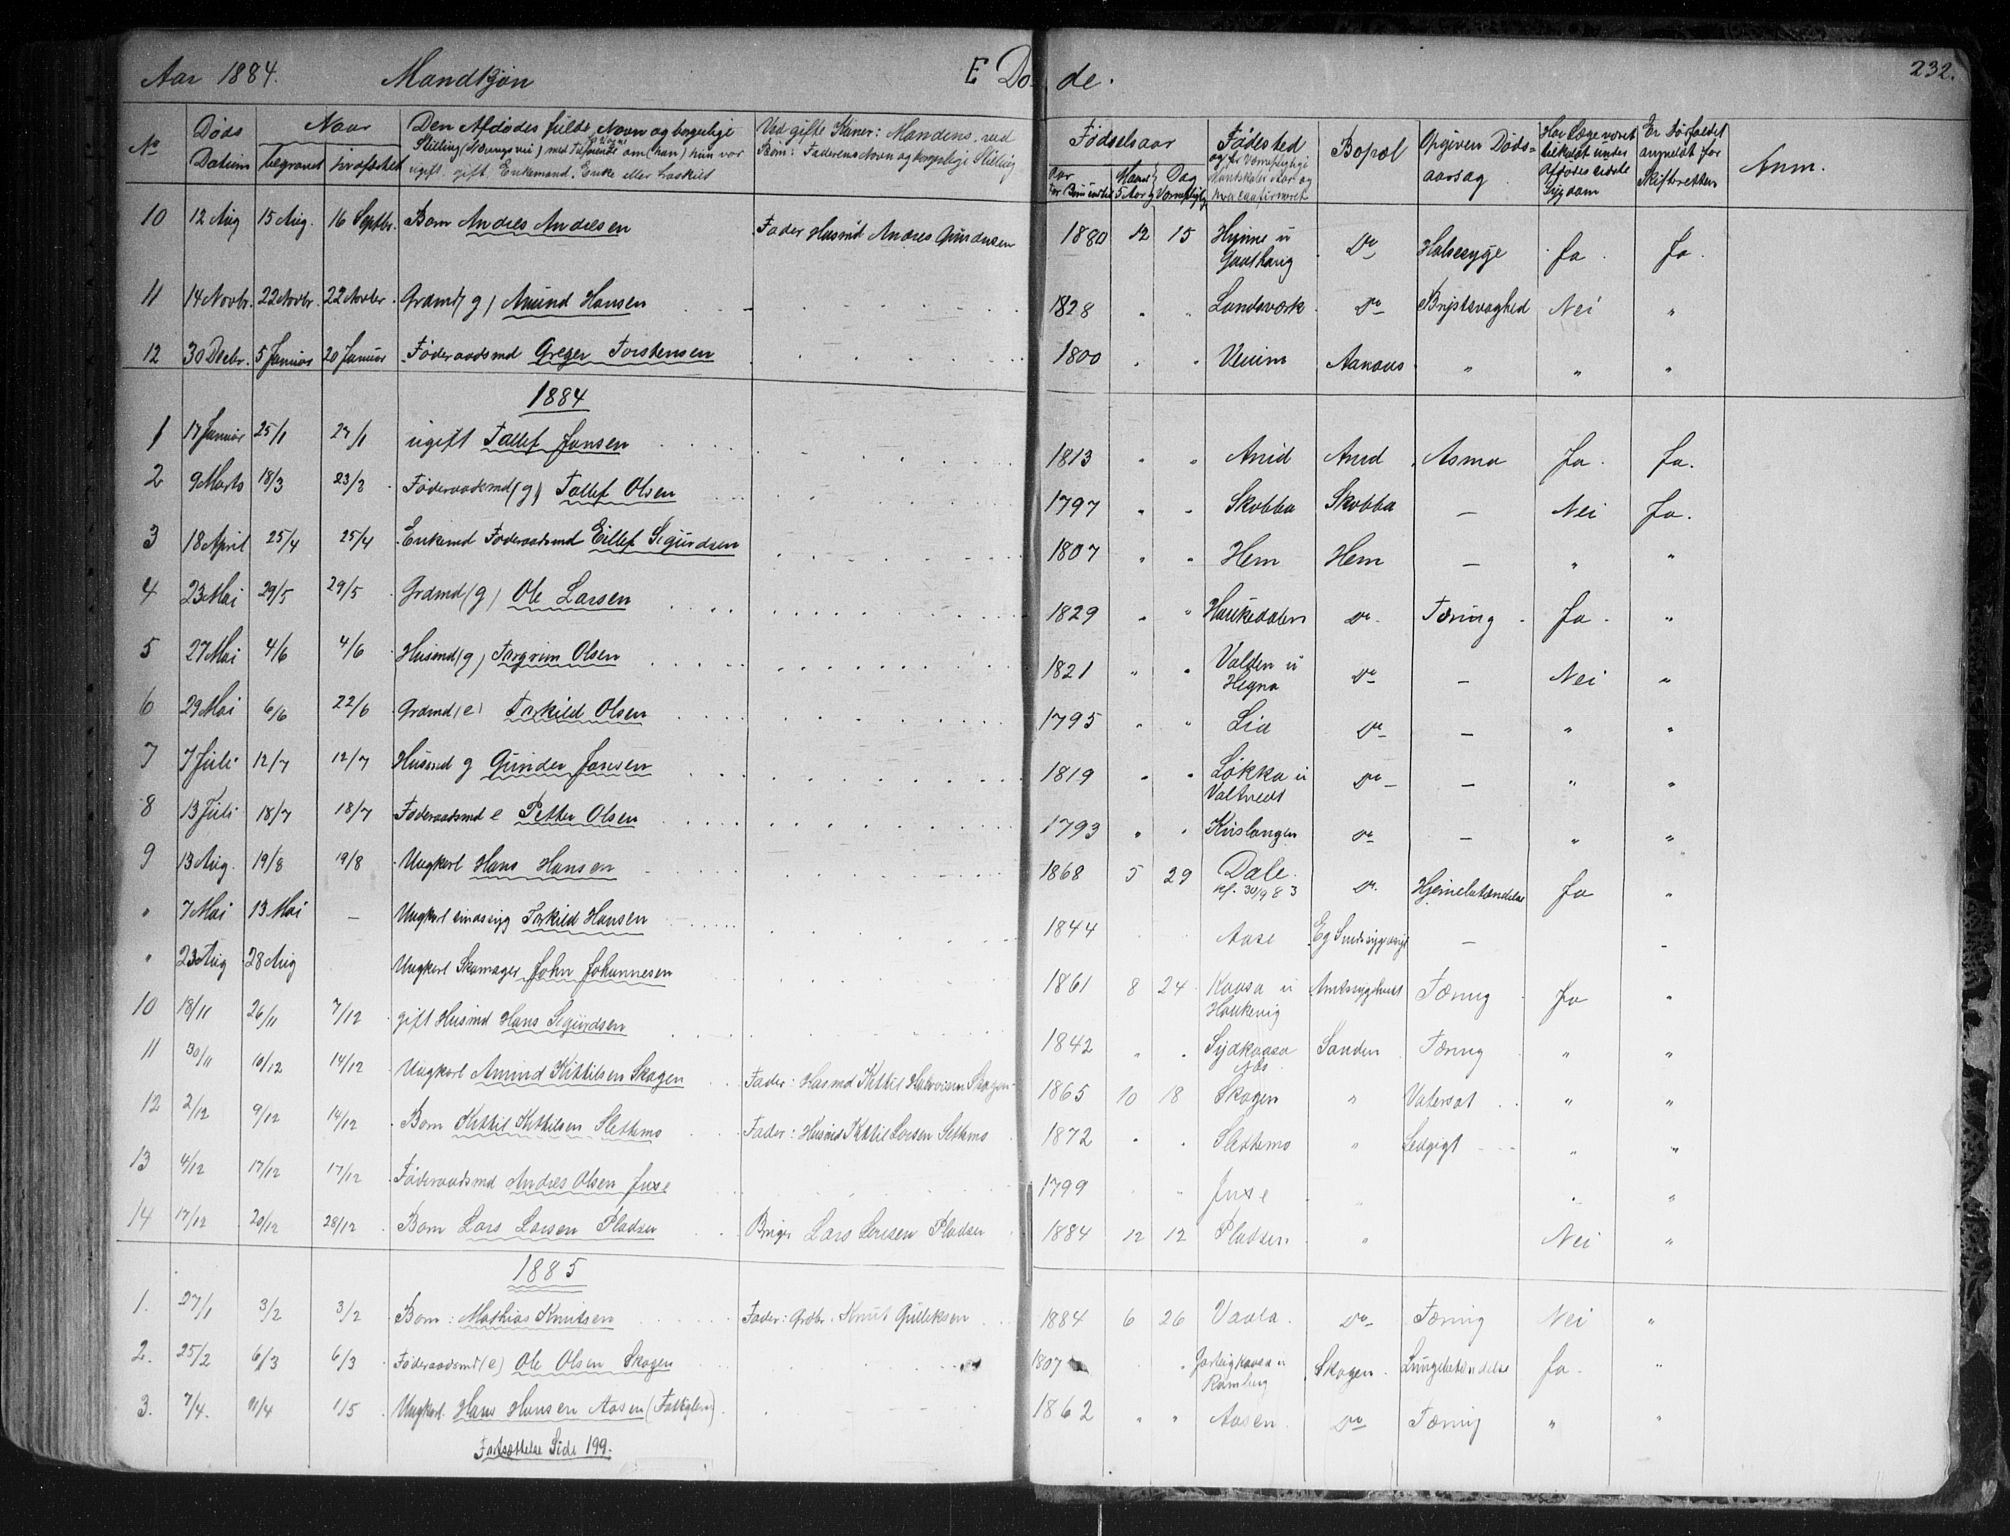 Aar 1884. Mandkjøn E Døde. 232.
No Døds Datum Naar begravet jordfæstet Den Afdødes fulde Navn og borgerlige Stilling (Næringsvei) med Tilføiende om (han) hun var ugift, gift, Enkemand, Enke eller fraskilt Ved gifte Koner: Mandens, ved Børn: Faderens Navn og borgerlige Stilling Fødselsaar Aar Maaned Dag Fødested Bopæl Opgiven Dødsaarsag Har Læge været tilkaldt under Afdødes sidste Sygdom Er Dødsfaldet anmeldt for Skifteretten Anm.
10 12 Aug 15 Aug. 16 Septbr. Barn Andres Andresen Fader Husmd Andres Gundersen 1880 12 15 Hynne u Do Halsesyge Ja Ja.
11 14 Novbr. 22 Novbr. 22 Novbr. Grdmd (g) Amund Hansen 1828 " " Landsverk Do Brystsvaghed Nei "
12 30 Decbr. 5 Januar 20 Januar Føderaadsmd Greger Torstensen 1800 " " Aanaas " " "
1884
1 17 Januar 25/1 27/1 ugift Tallef Jansen 1813 " " Arud Asma Ja. Ja.
2 9 Marts 18/3 23/3 Føderaadsmd (g) Tallef Olsen 1797 " " Skobba Skobba — Nei Ja.
3 18 April 25/4 25/4 Enkemd Føderaadsmd Eillef Sigurdsen 1807 " " Hem Hem — " "
4 23 Mai 29/5 29/5 Grdmd (g) Ole Larsen 1829 " " Haukedalen Do. Tæring Ja. "
5 27 Mai 4/6 4/6 Husmd (g) Torgrim Olsen 1821 " " Valden u Hegna Do — Nei "
6 29 Mai 6/6 22/6 Grdmd (e) Torkild Olsen 1795 " " Lia Do — " "
7 7 Juli 12/7 12/7 Husmd g Gunder Jansen 1819 " " Løkka u Valtvedt Do — " "
8 13 Juli 18/7 18/7 Føderaadsmd e Petter Olsen 1793 " " Kislangen Do — " "
9 13 Aug. 19/8 19/8 Ungkarl Hans Hansen 1868 5 29 Dale. kf. 30/9 83 Do. Hjernebetændelse Ja "
" 7 Mai 13 Mai — Ungkarl sindssyg Torkild Hansen 1844 Aase Eg Sindssygeasyl — -
" 23 Aug 28 Aug Ungkarl Skomager John Johannesen 1861 8 24 Kaasa u Haukevig Amtssygehuset Tæring Ja "
10 18/11 26/11 7/12 gift Husmd Hans Sigurdsen 1842 " " Sydkaasa Sanden Tæring " "
11 30/11 10/12 14/12 Ungkarl Amund Kittilsen Skogen Fader: Husmd Kittil Halvorsen Skogen 1865 10 18 Skogen " Vatersot " "
12 2/12 9/12 14/12 Barn Kittil Kittilsen Slettemo Fader: Husmd Kittil Larsen Slettemo 1872 " " Slettemo " Ledgigt " "
13 4/12 17/12 17/12 Føderaadsmd Andres Olsen Juxe 1799 " " Juxe " " "
14 17/12 20/12 28/12 Barn Lars Larsen Pladsen Lars Larsen Pladsen 1884 12 12 Pladsen " Nei "
1885
1. 27/1 3/2 3/2 Barn: Mathias Knutsen Fader: Grdbr. Knut Gulleksen 1884 6 26 Vaala Do Tæring Nei "
2. 25/2 6/3 6/3 Føderaadsmd (e) Ole Olsen Skogen 1807 " Ramberg Skogen Lungebetændelse Ja. "
3. 7/4. 11/4 1/5 Ungkarl Hans Hansen Aasen (Fattiglem) 1862 " " Aasen Do Tæring " "
Fortsættelse Side 199.